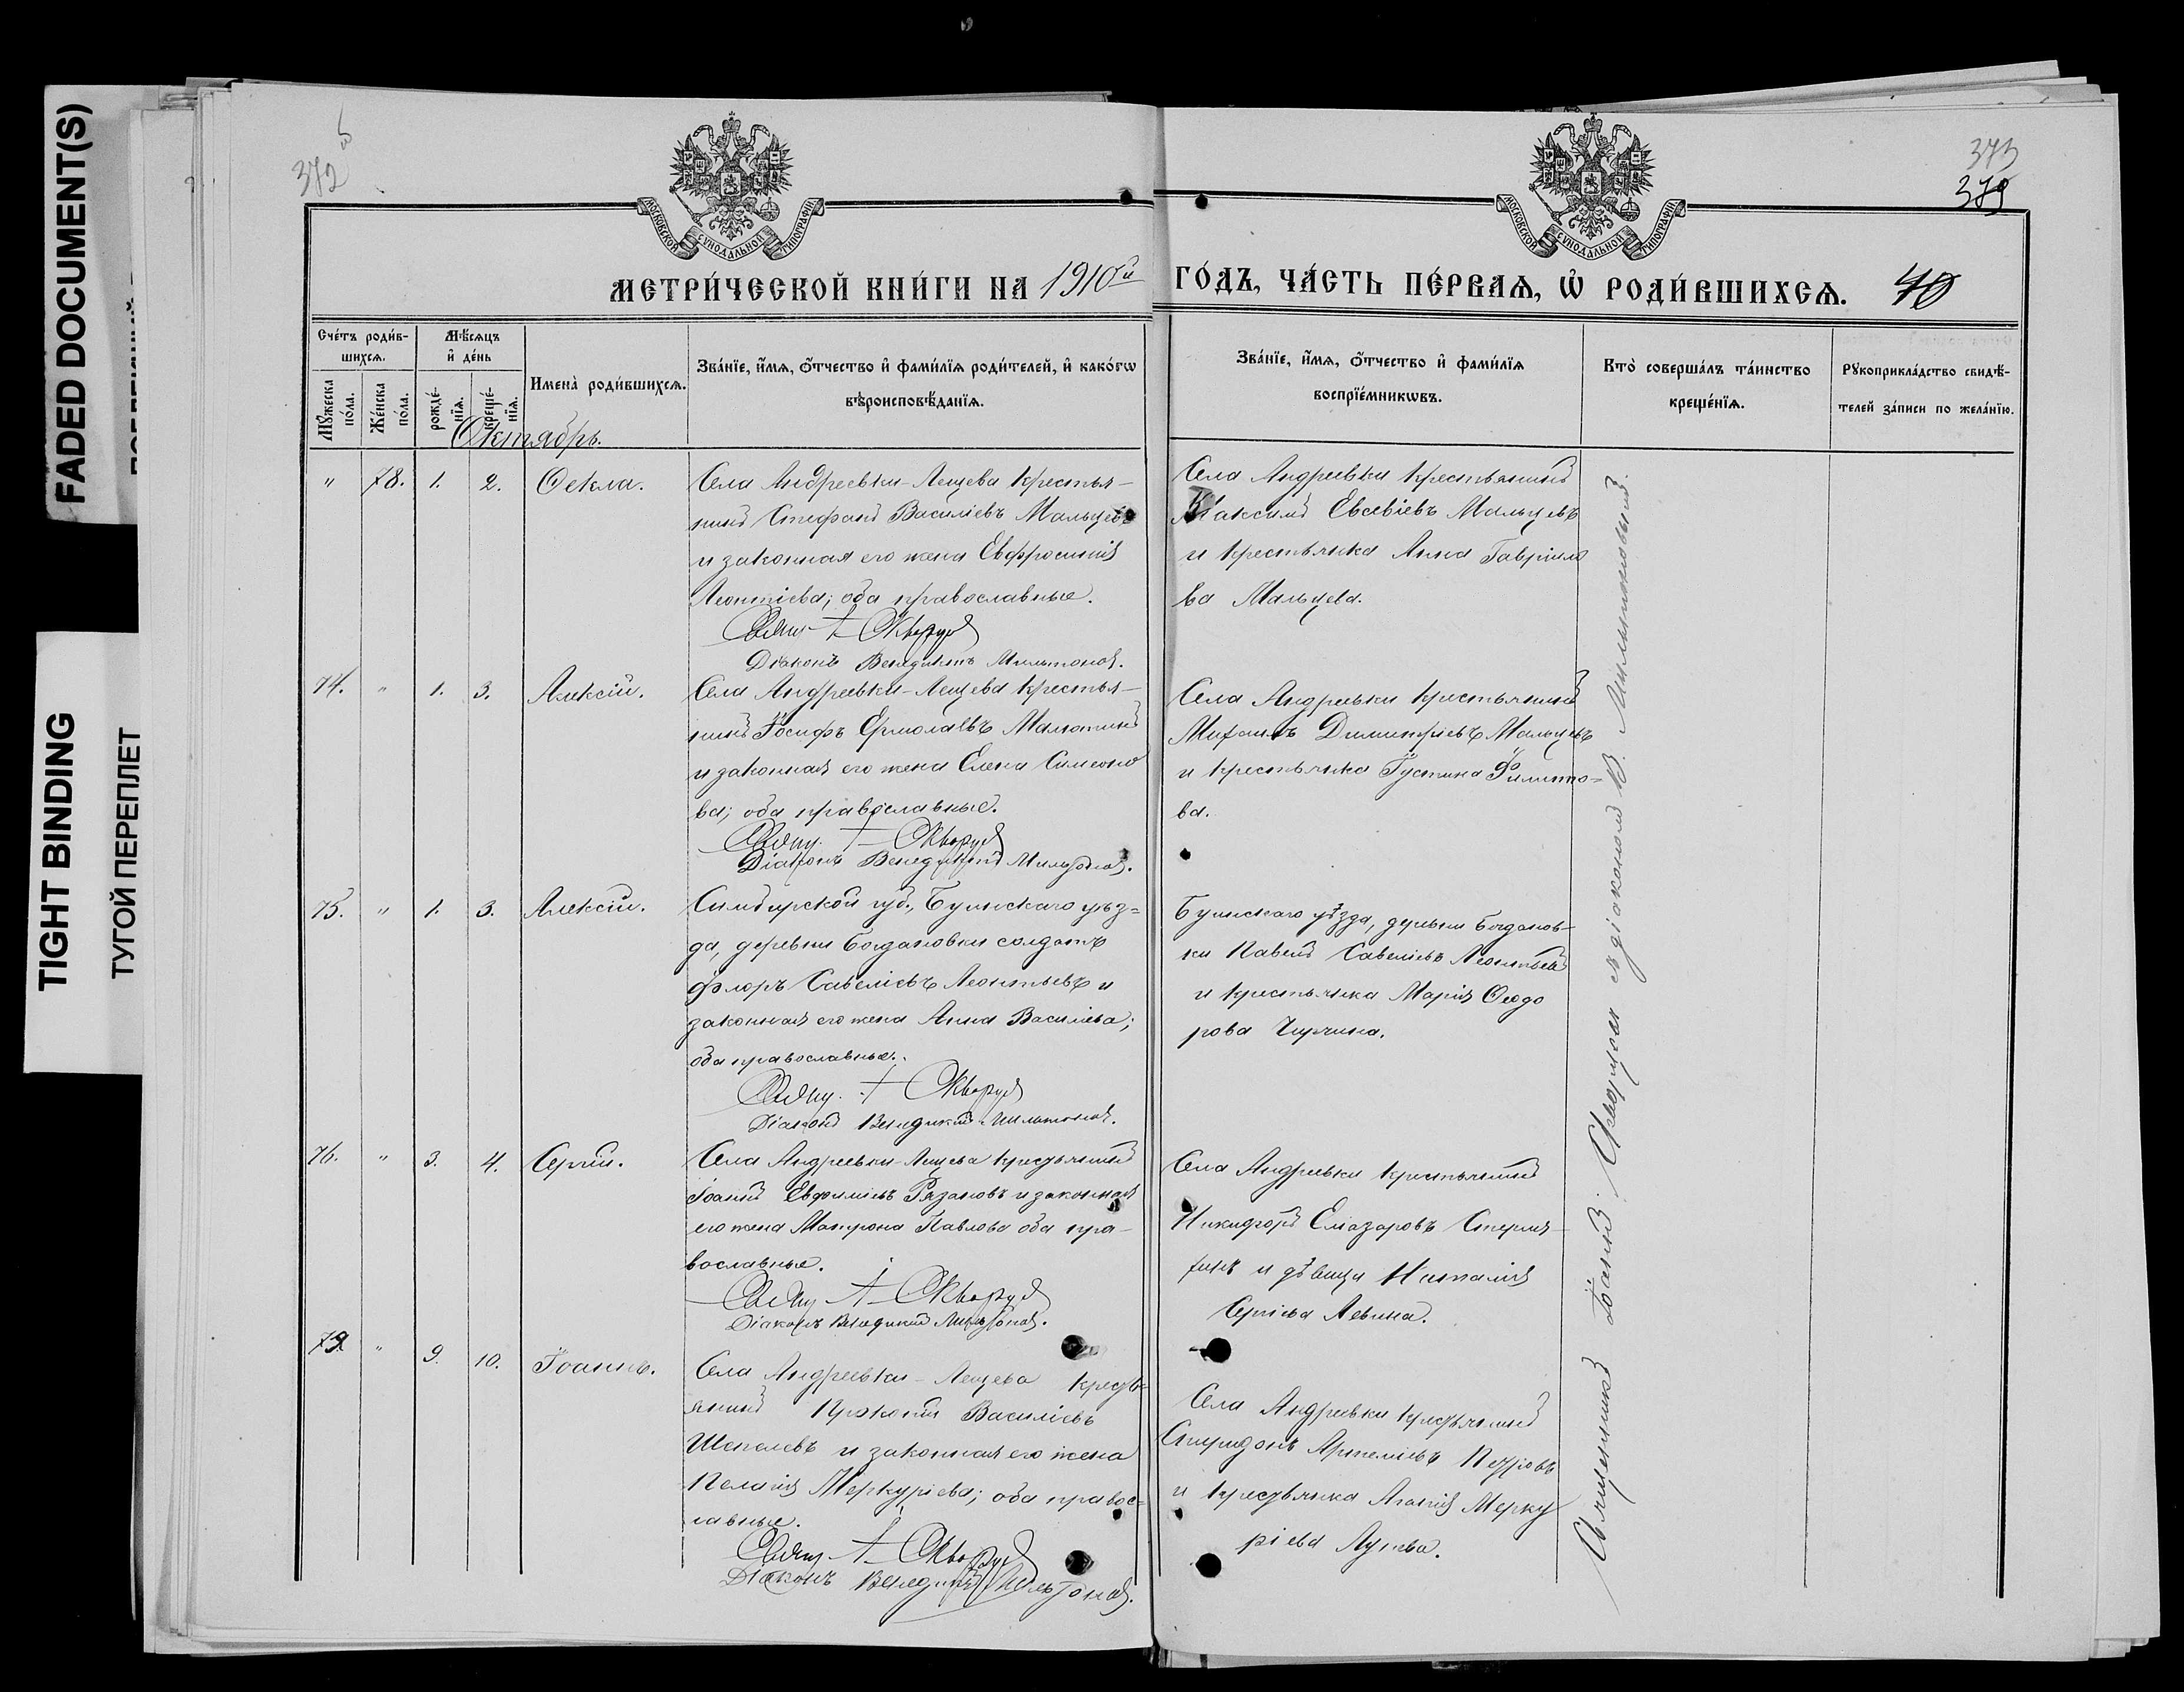 FADED DOCUMENT(S)
TIGHT BINDING
ТУГОЙ ПЕРЕПЛЕТ
372
373
379
МОСКОВСКОЙ СѴНОДАЛЬНОЙ ТИПОГРАФІИ
МОСКОВСКОЙ СѴНОДАЛЬНОЙ ТИПОГРАФІИ
МЕТРИ́ЧЕСКОЙ КНИ́ГИ НА 1910й
ГО́ДЪ, ЧА́СТЬ ПЕ́РВАѦ, Ѿ РОДИ́ВШИХСѦ. 40
Сче́тъ роди́в-
шихсѧ.
Мѹ́жеска по́ла.
Же́нска по́ла.
Мѣ́сѧцъ
и҆ де́нь
рожде́-нїѧ.
креще́-нїѧ.
Имена̀ роди́вшихсѧ.
Зва́нїе, и҆́мѧ, ѻ҆́тчество и҆ фами́лїѧ роди́телей, и҆ како́гѡ
вѣроисповѣ́данїѧ.
Зва́нїе, и҆́мѧ, ѻ҆́тчество и҆ фами́лїѧ
воспрїе́мникѡвъ.
Кто̀ соверша́лъ та́инство
креще́нїѧ.
Рꙋкоприкла́дство свидѣ́-
телей за́писи по жела́нїю.
Октябрь.
" 78. 1. 2. Ѳекла.
Села Андреевки-Лещева крестья-
нинъ Стефанъ Василіевъ Мальцевъ
и законная его жена Евфросинія
Леонтіева; оба православные.
Свящ. А Скворцов
Діаконъ Венедиктъ Мильтонов.
Села Андреевки крестьянинъ
Максимъ Евсевіевъ Мальцевъ
и крестьянка Анна Гаврило
ва Мальцева.
74. " 1. 3. Алексій.
Села Андреевки-Лещева крестья-
нинъ Іосифъ Ермолаевъ Малютинъ
и законная его жена Елена Симеоно
ва; оба православные.
Свящ. А Скворцов
Діаконъ Венедиктъ Мильтонов.
Села Андреевки крестьянинъ
Михаилъ Димитріевъ Мальцевъ
и крестьянка Іустина Филиппо=
ва.
75. " 1. 3. Алексій.
Симбирской губ., Буинскаго уѣз=
да, деревни Богдановки солдатъ
Флоръ Савеліевъ Леонтьевъ и
законная его жена Анна Василіева;
оба православные.
Свящ. А Скворцов
Діаконъ Венедиктъ Мильтонов.
Буинскаго уѣзда, деревни Богданов-
ки Павелъ Савеліевъ Леонтьевъ
и крестьянка Марія Ѳеодо
рова
76. " 3. 4. Сергій.
Села Андреевки-Лещева крестьянинъ
Іоаннъ Евфиміевъ Рязановъ и законная
его жена Матрона Павлова оба пра-
вославные.
Свящ. А Скворцов
Діаконъ Венедиктъ Мильтонов.
Села Андреевки крестьянинъ
Никифоръ Елеазаровъ
и дѣвица Наталія
Сергіева Левина.
" 9. 10. Іоаннъ.
Села Андреевки-Лещева кресть-
янинъ Прокопій Василіевъ
Шепелевъ и законная его жена
Пелагія Меркуріева; оба правос=
лавные.
Свящ. А Скворцов
Діаконъ Венедиктъ Мильтонов.
Села Андреевки крестьянинъ
Спиридонъ Артеміевъ Петровъ
и крестьянка Агаѳія Мерку
ріева
Священникъ Іоаннъ Скворцовъ съ діакономъ В. Мильтоновымъ.